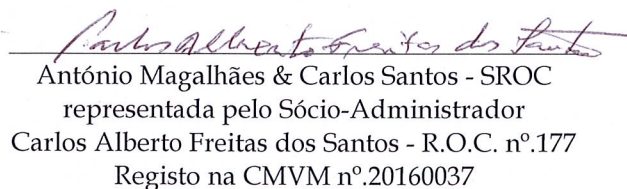 Carlos Alberto Freitas dos Santos
António Magalhães & Carlos Santos - SROC
representada pelo Sócio-Administrador
Carlos Alberto Freitas dos Santos - R.O.C. nº.177
Registo na CMVM nº.20160037